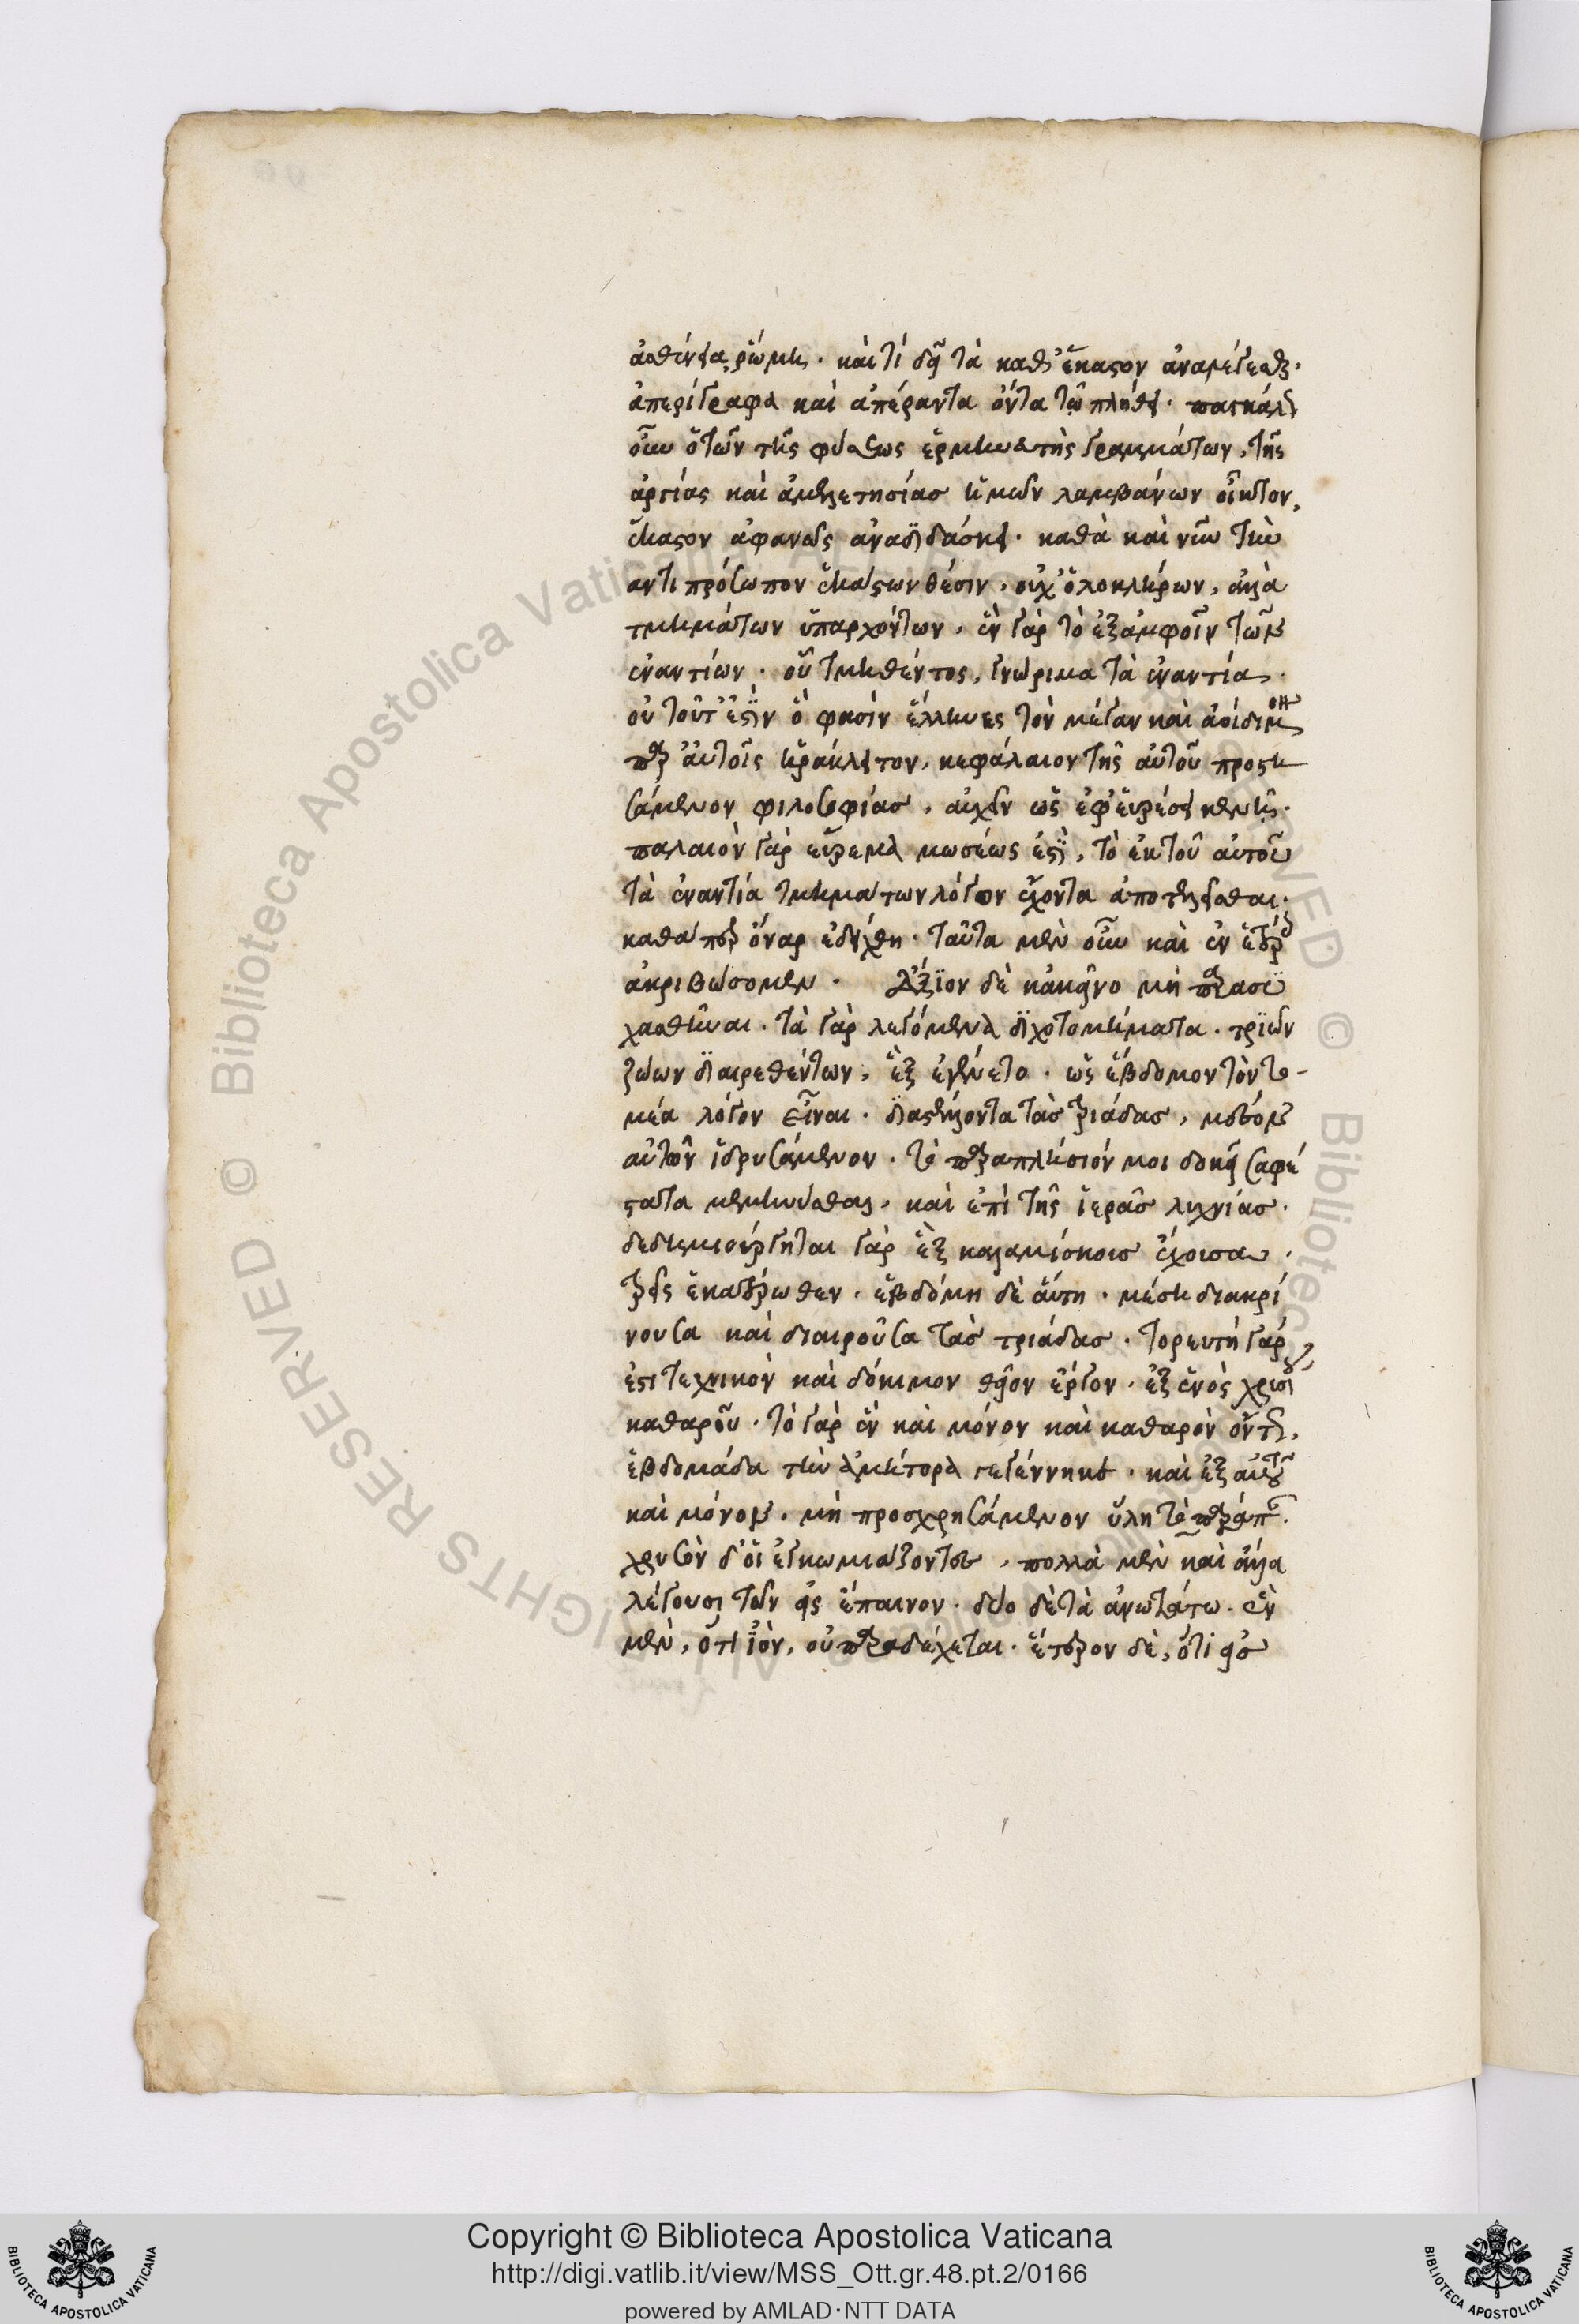 ἀσθένεια, ῥώμη. καὶ τί δεῖ τὰ καθ' ἕκαστον ἀναλέγεσθαι.
ἀπερίγραφα καὶ ἀπέραντα ὄντα τῷ πλήθει. παγκάλως
οὖν ὁ τῶν τῆς φύσεως ἑρμηνευτὴς γραμμάτων, τῆς
ἀργίας καὶ ἀμελετησίας ἡμῶν λαμβάνων οἶκτον,
ἕκαστον ἀφανῶς ἀναδιδάσκει. καθὰ καὶ νῦν τὴν
αντιπρόσωπον ἑκάστων θέσιν, οὐχ' ὁλοκλήρων, ἀλλὰ
τμημάτων ὑπαρχόντων, ἓν γὰρ τὸ ἐξ ἀμφοῖν τῶν
ἐναντίων. οὗ τμηθέντος, γνώριμα τὰ ἐναντία.
οὐ τοῦτ' ἐστὶν ὅ φασὶν ἕλληνες τὸν μέγαν καὶ ἀοίδιμον
παρ' αὐτοῖς ἡράκλειτον, κεφάλαιον τῆς αὐτοῦ προστη
σάμενον φιλοσοφίας, αὐχεῖν ὡς ἐφ' εὑρέσει κενῇ.
παλαιὸν γὰρ εὕρεμα μωσέως ἐστὶ, τὸ ἐκ τοῦ αὐτοῦ
τὰ ἐναντία τμημάτων λόγον ἔχοντα ἀποτελεῖσθαι.
καθάπερ ὄναρ ἐδείχθη. ταῦτα μὲν οὖν καὶ ἐν ἑτέροις
ἀκριβώσομεν. Ἄξιον δὲ κἀκεῖνο μὴ παρασι
χασθῆναι. τὰ γὰρ λεγόμενα διχοτομήματα. τριῶν
ζώων διαιρεθέντων, ἓξ ἐγένετο. ὡς ἕβδομον τὸν το-
μέα λόγον εἶναι. διαστέλλοντα τὰς τριάδας, μέσον
αὐτὸν ἱδρυσάμενον. τὸ παραπλήσιόν μοι δοκεῖ σαφέ
στατα μεμηνύσθαι, καὶ ἐπὶ τῆς ἱερᾶς λυχνίας.
δεδημιούργηται γὰρ ἓξ καλαμίσκοις ἔχουσα.
τρεῖς ἑκατέρωθεν. ἑβδόμη δὲ αὕτη. μέση διακρί
νουσα καὶ διαιροῦσα τὰς τριάδας. τορευτὴ γάρ
ἐστι τεχνικὸν καὶ δόκιμον θεῖον ἔργον. ἐξ ἑνὸς χρυσίου
καθαροῦ. τὸ γὰρ ἓν καὶ μόνον καὶ καθαρὸν ὄντως,
ἑβδομάδα τὴν ἀμήτορα γεγέννηκε. καὶ ἐξ αὐτοῦ
καὶ μόνον. μὴ προσχρησάμενον ὕλῃ τὸ παράπαν.
χρυσὸν δ' οἱ ἐγκωμιάζοντες, πολλὰ μὲν καὶ ἄλλα
λέγουσι τῶν εἰς ἔπαινον. δύο δὲ τὰ ἀνωτάτω. ἓν
μὲν, ὅτι ἰὸν, οὐ παραδέχεται. ἕτερον δὲ, ὅτι εἰς
Copyright © Biblioteca Apostolica Vaticana
http://digi.vatlib.it/view/MSS_Ott.gr.48.pt.2/0166
powered by AMLAD·NTT DATA